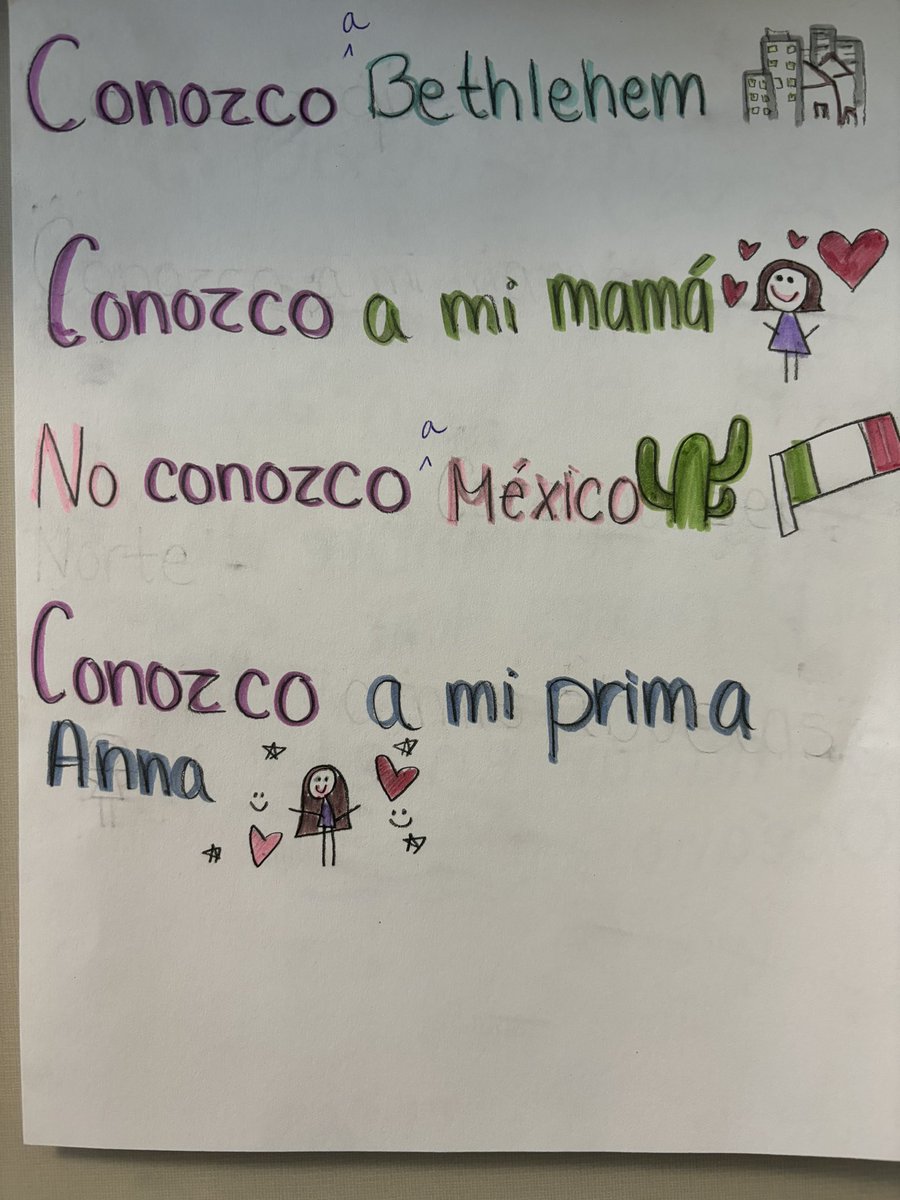 Conozco a Bethlehem
Conozco a mi mamá
No conozco a México
Norte
Conozco a mi prima
Anna